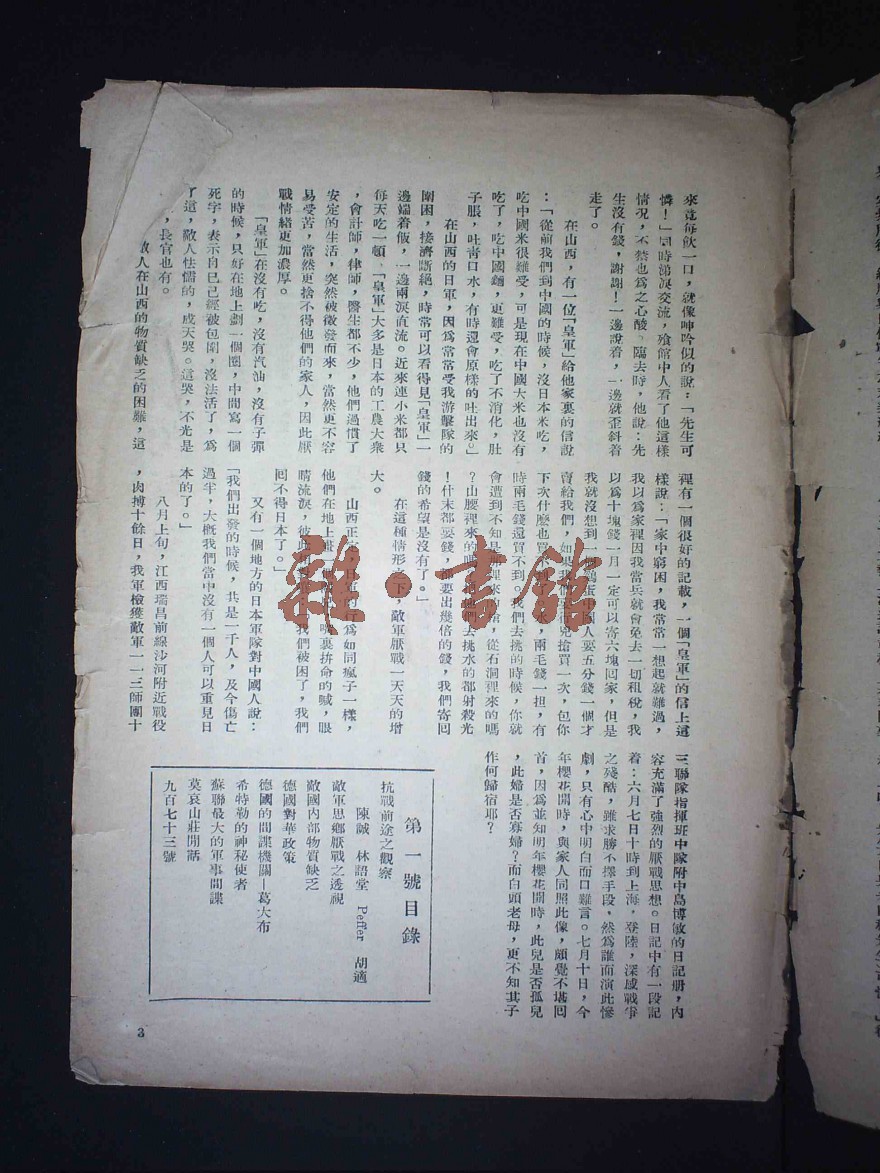 來竟每飲一口，就像呻吟似的說：「先生可
憐！」同時涕淚交流，飱館中人看了他這樣
情况，不禁也爲之心酸。臨去時，他說：先
生沒有錢，謝謝！一邊說着，一邊就歪斜着
走了。
在山西，有一位「皇軍」給他家裏的信說
：「從前我們到中國的時候，沒日本米吃，
吃中國米很難受，可是現在中國大米也沒有
吃了，吃中國麵，更難受，吃了不消化，肚
子脹，吐靑口水，有時還會原樣的吐出來。」
在山西的日軍，因爲常常受我游擊隊的
圍困，接濟斷絕，時常可以看得見「皇軍」一
邊端着飯，一邊兩淚直流。近來連小米都只
每天吃一頓。「皇軍」大多是日本的工農大衆
，會計師，律師，醫生都不少，他們過慣了
安定的生活，突然被徵發而來，當然更不容
易受苦，當然更捨不得他們的家人，因此厭
戰情緒更加濃厚。
「皇軍」在沒有吃，沒有汽油，沒有子彈
的時候，只好在地上劃一個圈，中間寫一個
死字，表示自己已經被包圍，沒法活了，爲
了這，敵人怯懦的，成天哭。這哭，不光是
，長官也有。
敵人在山西的物質缺乏的困難，這
裡有一個很好的記載，一個「皇軍」的信上這
樣說：「家中窮困，我常常一想起就難過，
我以爲家裡因我當兵就會免去一切租稅，我
以爲十塊錢一月一定可以寄六塊囘家，但是
我就沒想到一個鷄蛋中國人要五分錢一個才
賣給我們，如果我們要去搶買一次，包你
下次什麽也買不到了，水，兩毛錢一担，有
時兩毛錢還買不到。我們去挑的時候，你就
會遭到不知是那裡來的槍，從石洞裡來的嗎
？山腰裡來的嗎？把他們去挑水的都射殺光
！什末都要錢，都要出幾倍的錢，我們寄囘
錢的希望是沒有了。」
在這種情形之下，敵軍厭戰一天天的增
大。
山西正定，日軍的行爲如同瘋子一樣，
他們在地上畫 嘴裏拚命的喊，眼
睛流淚，彼此 我們被困了，我們
囘不得日本了。」
又有一個地方的日本軍隊對中國人說：
「我們出發的時候，共是一千人，及今傷亡
過半，大槪我們當中沒有一個人可以重見日
本的了。」
八月上旬，江西瑞昌前線沙河附近戰役
，肉搏十餘日，我軍檢獲敵軍一一三師團十
三聯隊指揮班中隊附中島博敏的日記册，內
容充滿了強烈的厭戰思想。日記中有一段記
着：六月七日十時到上海，登陸，深感戰爭
之殘酷，雖求勝不擇手段，然爲誰而演此慘
劇，只有心中明白而口難言。七月十日，今
年櫻花開時，與家人同照此像，頗覺不堪囘
首，因爲並知明年櫻花開時，此兒是否孤兒
，此婦是否寡婦？而白頭老母，更不知其子
作何歸宿耶？
第一號目錄
抗戰前途之觀察
陳誠　林語堂　Peffer　胡適
敵軍思鄉厭戰之透視
敵國內部物質缺乏
德國對華政策
德國的間諜機關—葛大布
希特勒的神秘使者
蘇聯最大的軍事間諜
莫哀山莊閒話
九百七十三號
3
雜·書館